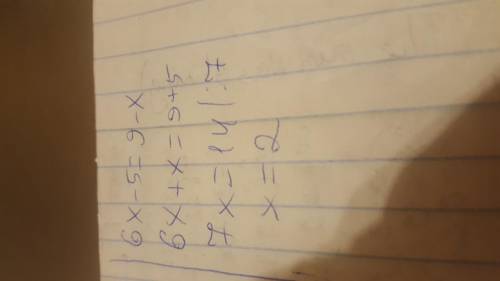 6x-5=9-x
6x+x=9+5
7x=14 |:7
x=2